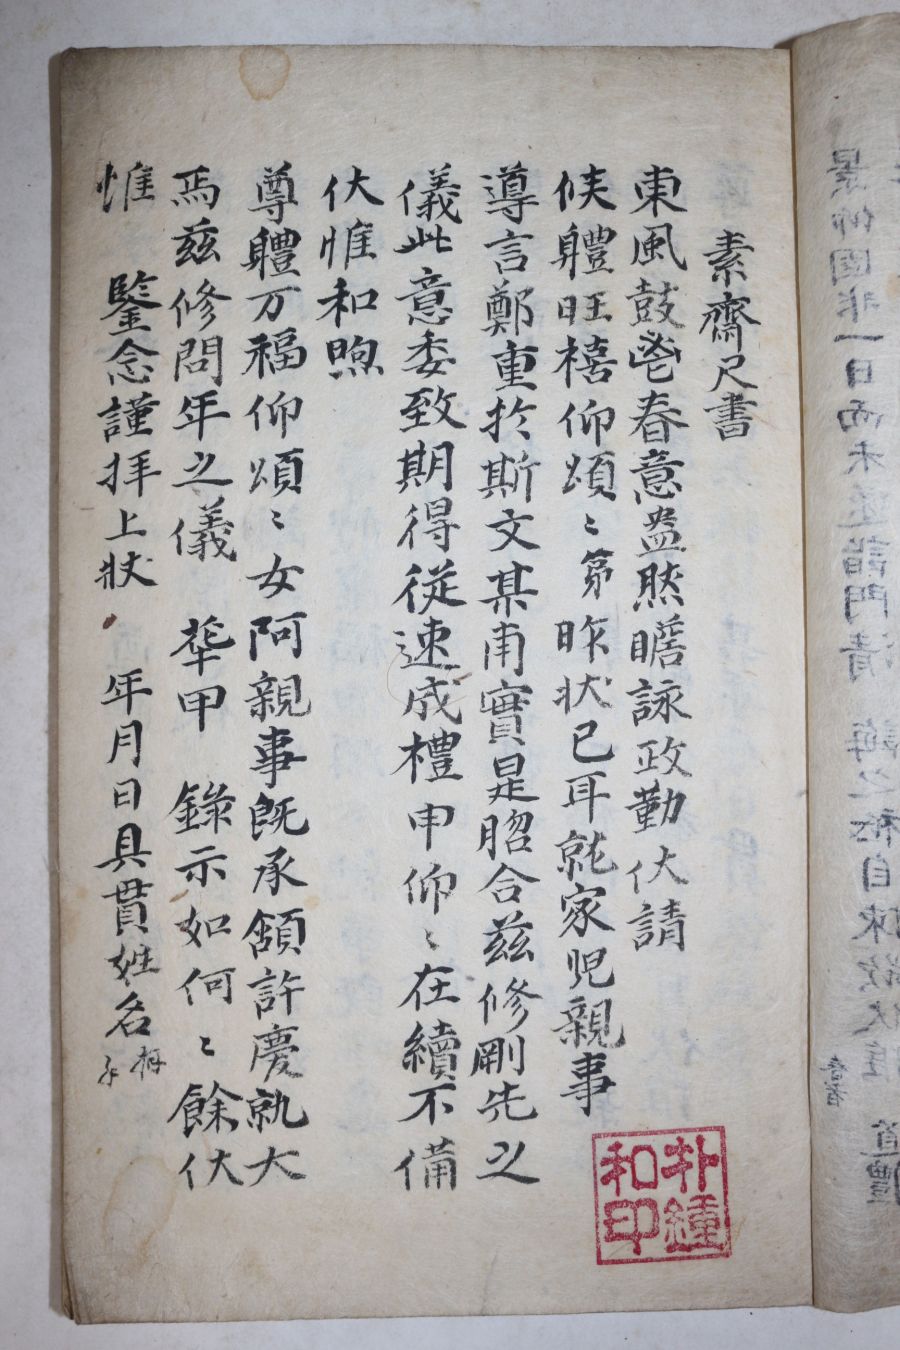 素齋尺書
東風鼓鬯春意盎然瞻詠政勤伏請
候體旺禧仰頌〻第昨状已耳就家児親事
導言鄭重扵斯文某甫實是脗合玆修剛先之
儀此意委致期得従速成禮申仰〻在續不備
伏惟和煦
尊軆万福仰頌〻女阿親事既承頷許慶孰大
焉玆修問年之儀 甲 錄示如何〻餘伏
惟 鑒念謹拜上状 年月日具貫姓名
朴鍾
和印